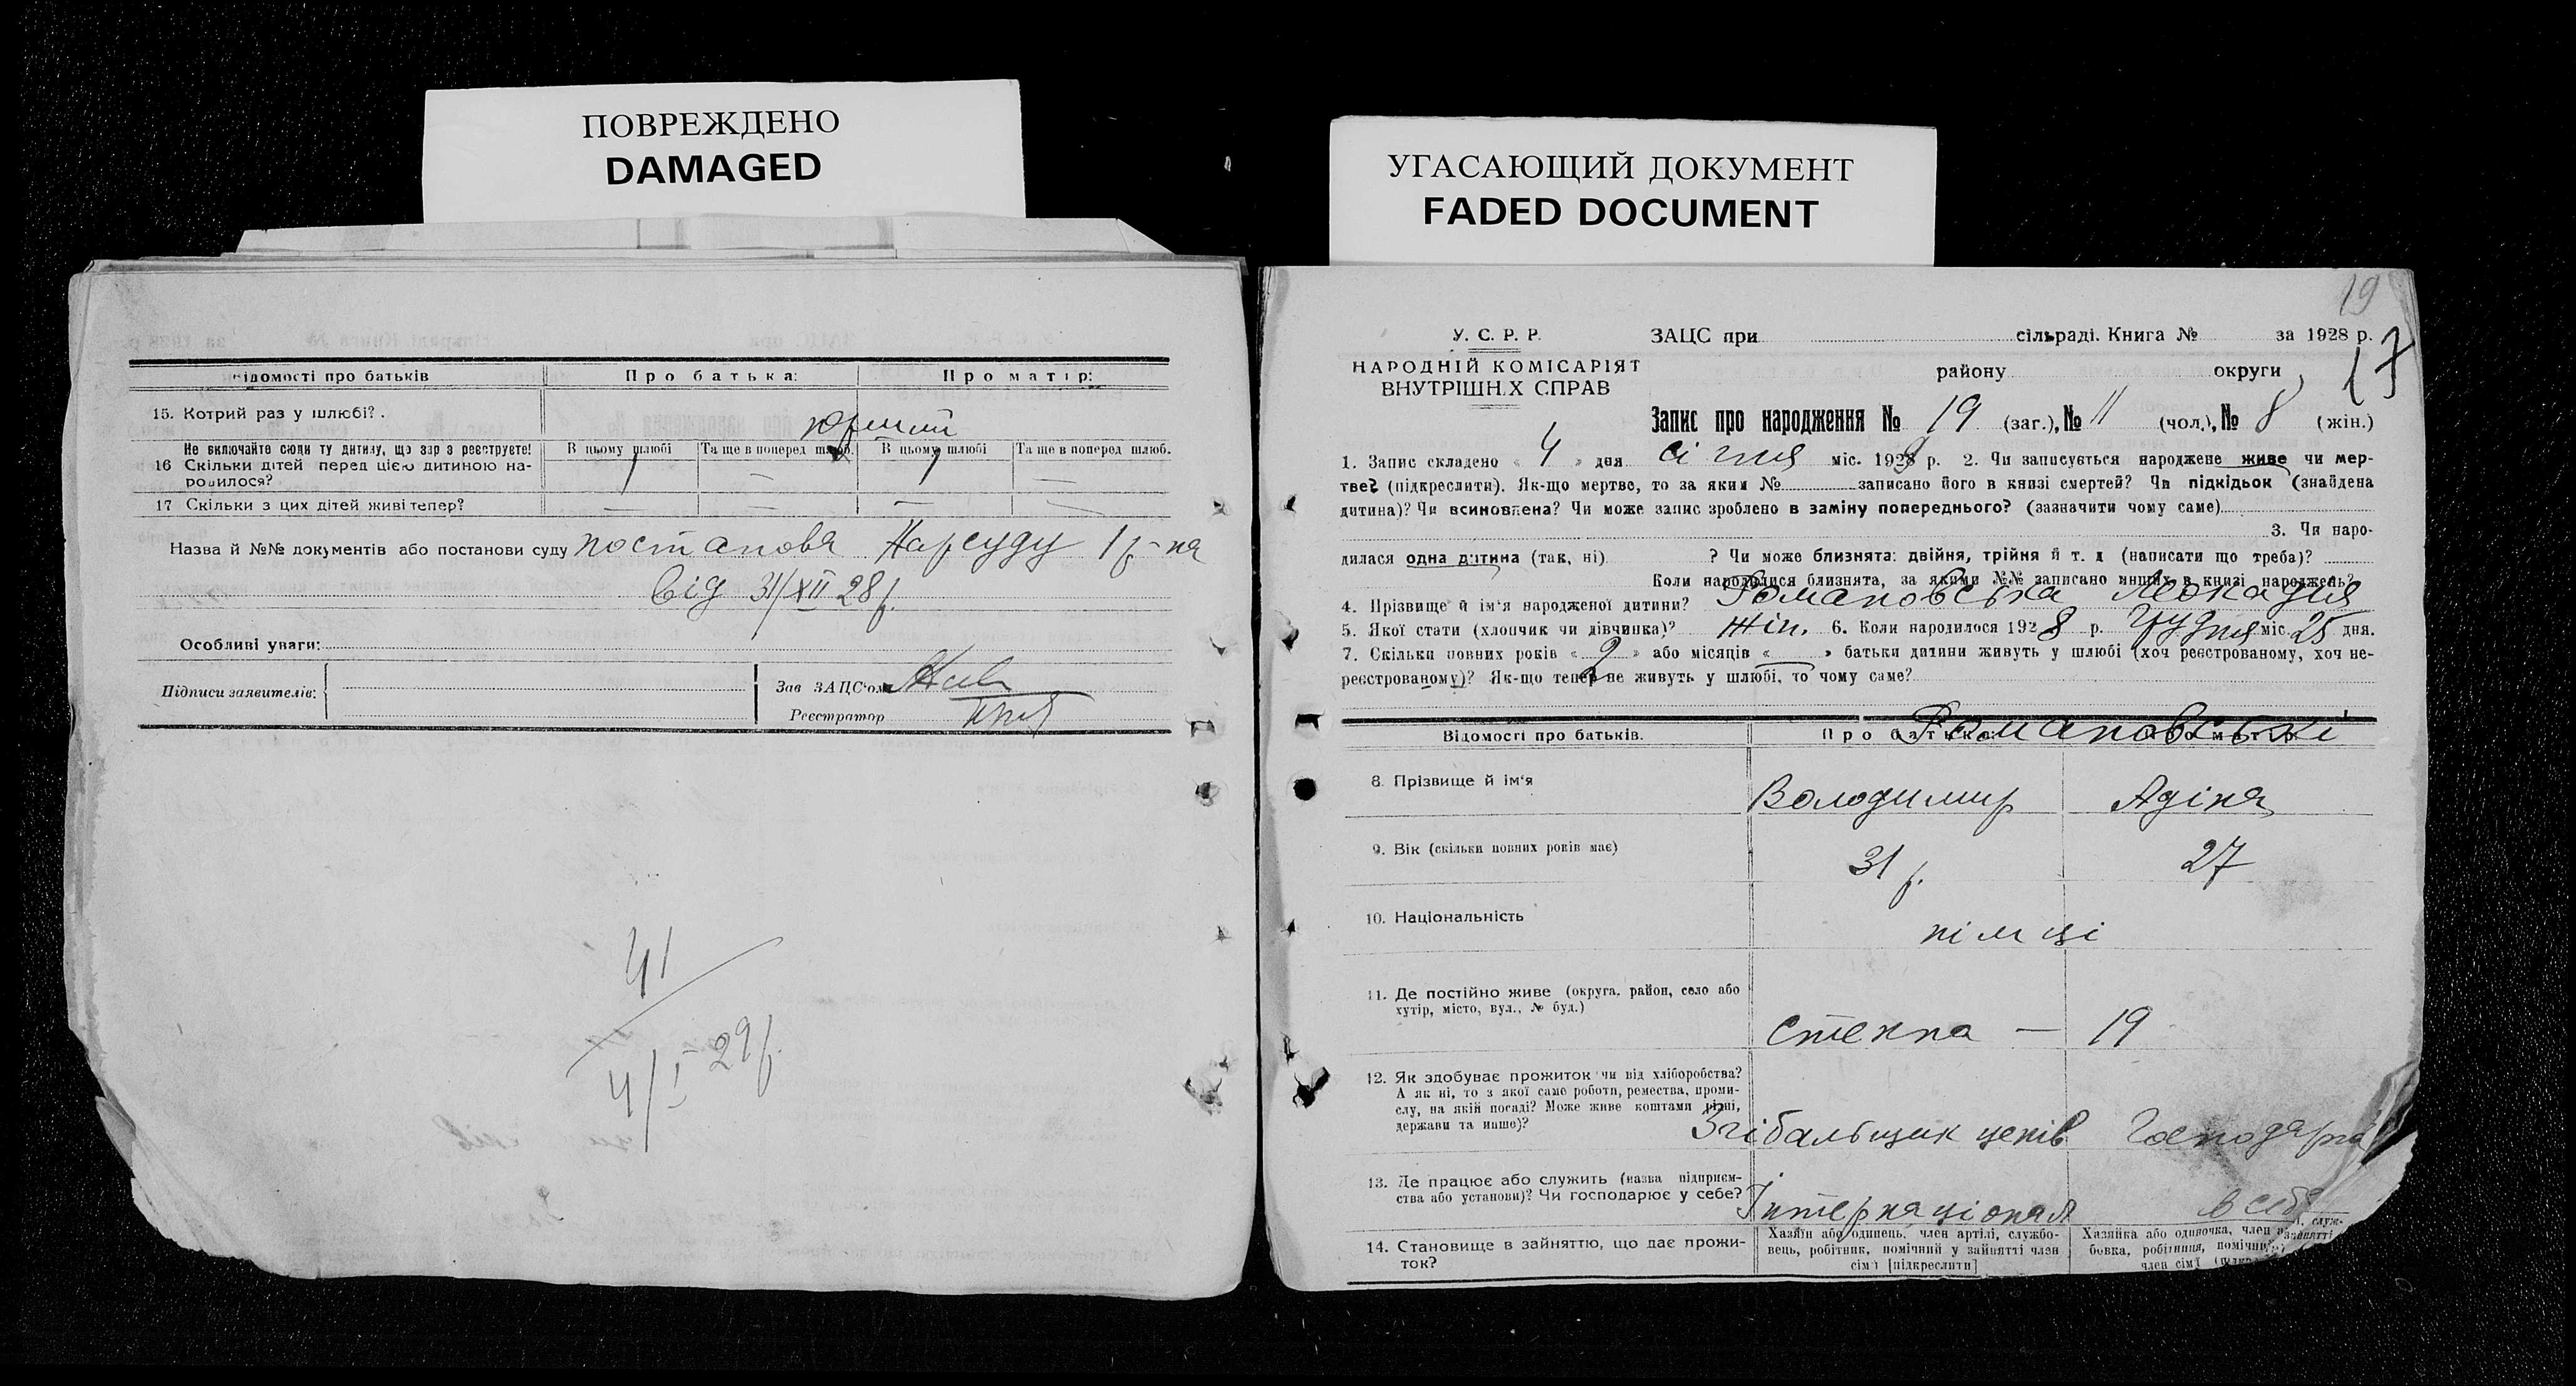 ПОВРЕЖДЕНО
DAMAGED
Відомості про батьків Про батька: Про матір:
15. Котрий раз у шлюбі?.
Не включайте сюди ту дитину, що зараз реєструєте! В цьому шлюбі Та ще в поперед шлюб. В цьому шлюбі Та ще в поперед шлюб.
16 Скільки дітей перед цією дитиною на- 1 — 1 —
родилося?
17 Скільки з цих дітей живі тепер? — — — —
Назва й №№ документів або постанови суду постанова Нарсуду 1 р-на
від 31/XII 28 р.
Особливі уваги:
Підписи заявителів: Зав ЗАЦС'ом
Реєстратор
41
4/I – 29 р.
УГАСАЮЩИЙ ДОКУМЕНТ
FADED DOCUMENT
19
У. С. Р. Р. ЗАЦС при сільраді. Книга № за 1928 р.
17
НАРОДНІЙ КОМІСАРІЯТ району округи
ВНУТРІШНІХ СПРАВ
Запис про народження № 19 (заг.), № 11 (чол.), № 8 (жін.)
1. Запис складено « 4 » дня січня міс. 1929 р. 2. Чи записується народжене живе чи мер-
тве? (підкреслити). Як-що мертве, то за яким № записано його в книзі смертей? Чи підкідьок (знайдена
дитина)? Чи всиновлена? Чи може запис зроблено в заміну попереднього? (зазначити чому саме)
3. Чи наро-
дилася одна дитина (так, ні) ? Чи може близнята: двійня, трійня й т. д (написати що треба)?
Коли народилися близнята, за якими №№ записано инших в книзі народжень?
4. Прізвище й ім'я народженої дитини? Романовська Леокадія
5. Якої стати (хлопчик чи дівчинка)? жін. 6. Коли народилося 1928 р. Грудня міс. 25 дня.
7. Скільки повних років « 2 » або місяців « — » батьки дитини живуть у шлюбі (хоч реєстрованому, хоч не-
реєстрованому)? Як-що тепер не живуть у шлюбі, то чому саме?
Романовські
Відомості про батьків. Про батька: Про матір:
8. Прізвище й ім'я Володимир Адіна
9. Вік (скільки повних років має) 31 р. 27
10. Національність німці
11. Де постійно живе (округа, район, село або
хутір, місто, вул., № буд.)
19
12. Як здобуває прожиток чи від хліборобства?
А як ні, то з якої саме роботи, ремества, проми-
слу, на якій посаді? Може живе коштами рідні,
держави та инше)?
Згібальщик цепів Господарка
13. Де працює або служить (назва підприєм-
ства або установи)? Чи господарює у себе?
Інтернаціонал в себе
14. Становище в зайняттю, що дає прожи-
ток?
Хазяїн або одинець, член артілі, службо-
вець, робітник, помічний у зайнятті член
сім'ї [підкреслити]
Хазяйка або одиночка, член служ-
бовка, робітниця, помічни зайнятті
член сім'ї